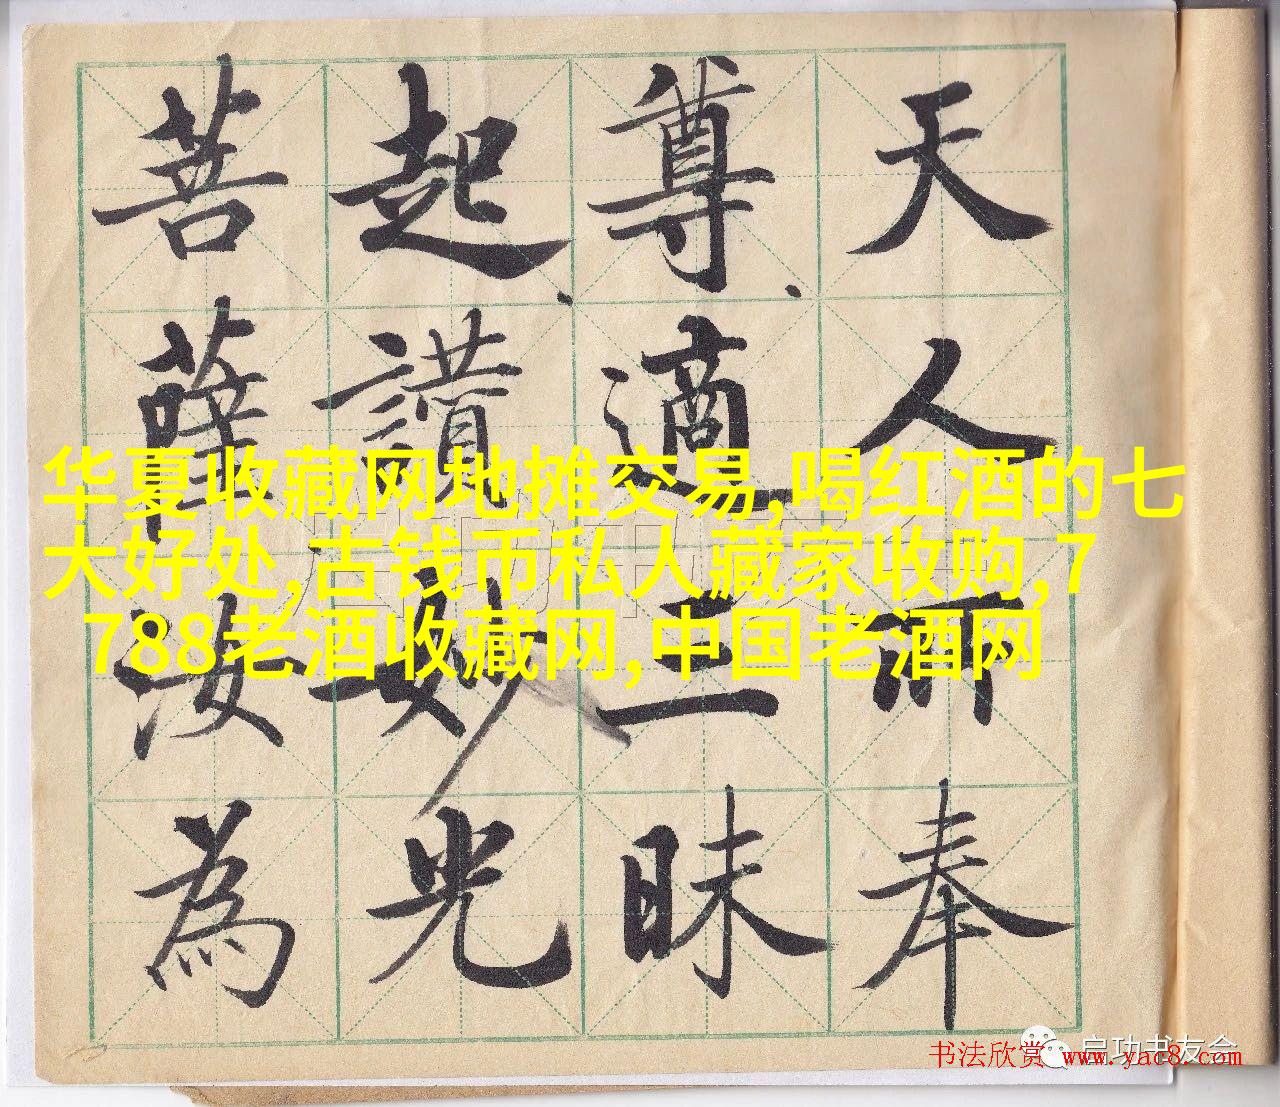 天人所奉
尊、適三昧
起、讚妙光
菩薩汝為
华夏收藏网地摊交易,喝红酒的七
大好处,古钱币私人藏家收购,7
788老酒收藏网,中国老酒网
启功书友会
书法欣赏 www.yac8.com